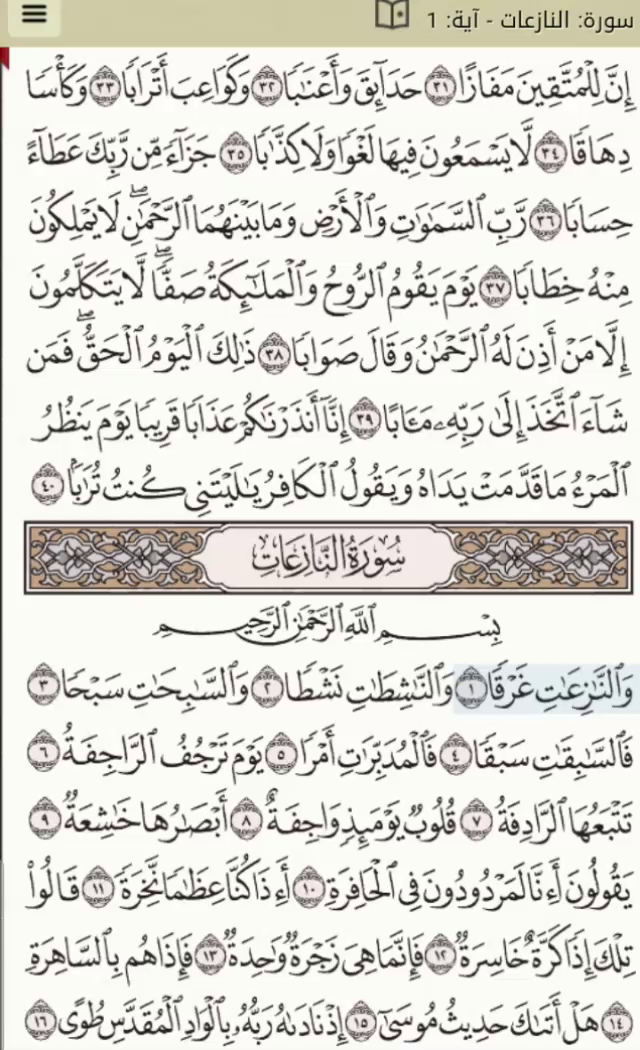 سورة: النازعات - آية: 1
إِنَّ لِلْمُتَّقِينَ مَفَازًا ٣١ حَدَآئِقَ وَأَعْنَٰبًا ٣٢ وَكَوَاعِبَ أَتْرَابًا ٣٣ وَكَأْسًا
دِهَاقًا ٣٤ لَّا يَسْمَعُونَ فِيهَا لَغْوًا وَلَا كِذَّٰبًا ٣٥ جَزَآءً مِّن رَّبِّكَ عَطَآءً
حِسَابًا ٣٦ رَّبِّ ٱلسَّمَٰوَٰتِ وَٱلْأَرْضِ وَمَا بَيْنَهُمَا ٱلرَّحْمَٰنِۖ لَا يَمْلِكُونَ
مِنْهُ خِطَابًا ٣٧ يَوْمَ يَقُومُ ٱلرُّوحُ وَٱلْمَلَٰٓئِكَةُ صَفًّاۖ لَّا يَتَكَلَّمُونَ
إِلَّا مَنْ أَذِنَ لَهُ ٱلرَّحْمَٰنُ وَقَالَ صَوَابًا ٣٨ ذَٰلِكَ ٱلْيَوْمُ ٱلْحَقُّۖ فَمَن
شَآءَ ٱتَّخَذَ إِلَىٰ رَبِّهِۦ مَـَٔابًا ٣٩ إِنَّآ أَنذَرْنَٰكُمْ عَذَابًا قَرِيبًا يَوْمَ يَنظُرُ
ٱلْمَرْءُ مَا قَدَّمَتْ يَدَاهُ وَيَقُولُ ٱلْكَافِرُ يَٰلَيْتَنِى كُنتُ تُرَٰبًۢا ٤٠
سُورَةُ النَّازِعَاتِ
بِسْمِ ٱللَّهِ ٱلرَّحْمَٰنِ ٱلرَّحِيمِ
وَٱلنَّٰزِعَٰتِ غَرْقًا ١ وَٱلنَّٰشِطَٰتِ نَشْطًا ٢ وَٱلسَّٰبِحَٰتِ سَبْحًا ٣
فَٱلسَّٰبِقَٰتِ سَبْقًا ٤ فَٱلْمُدَبِّرَٰتِ أَمْرًا ٥ يَوْمَ تَرْجُفُ ٱلرَّاجِفَةُ ٦
تَتْبَعُهَا ٱلرَّادِفَةُ ٧ قُلُوبٌ يَوْمَئِذٍ وَاجِفَةٌ ٨ أَبْصَٰرُهَا خَٰشِعَةٌ ٩
يَقُولُونَ أَءِنَّا لَمَرْدُودُونَ فِى ٱلْحَافِرَةِ ١٠ أَءِذَا كُنَّا عِظَٰمًا نَّخِرَةً ١١ قَالُوا۟
تِلْكَ إِذًا كَرَّةٌ خَاسِرَةٌ ١٢ فَإِنَّمَا هِىَ زَجْرَةٌ وَٰحِدَةٌ ١٣ فَإِذَا هُم بِٱلسَّاهِرَةِ
١٤ هَلْ أَتَىٰكَ حَدِيثُ مُوسَىٰٓ ١٥ إِذْ نَادَىٰهُ رَبُّهُۥ بِٱلْوَادِ ٱلْمُقَدَّسِ طُوًى ١٦